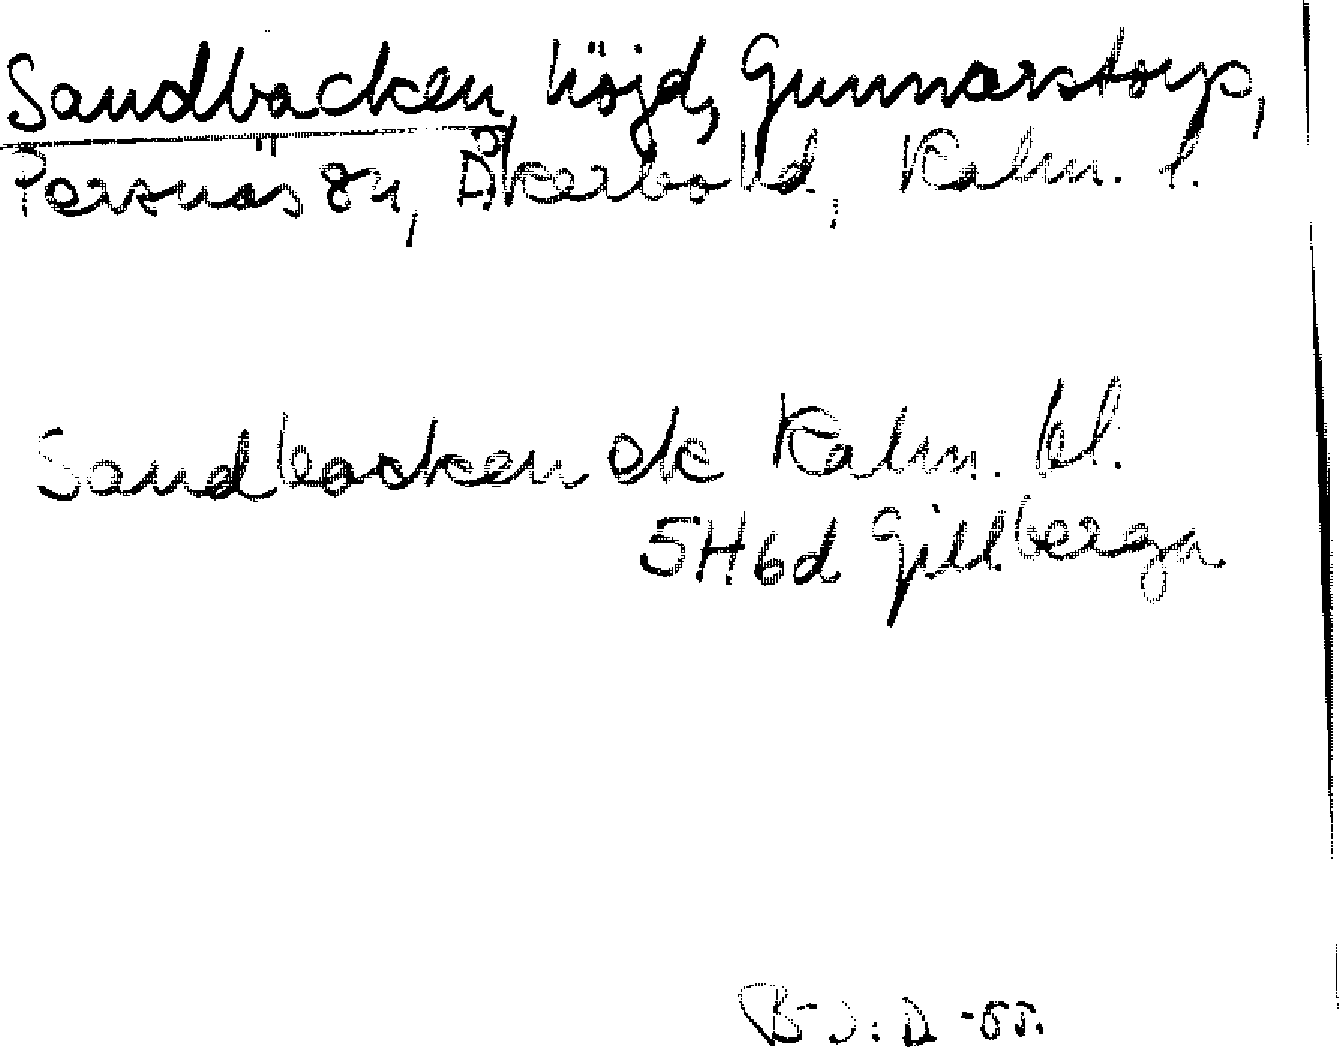 Sandbacken, höjd, Gunnarstorp,
Persnäs sn, Åkerbo hd, Kalm. l.
Sandbacken ek Kalm. bl.
5H6d Gillberga